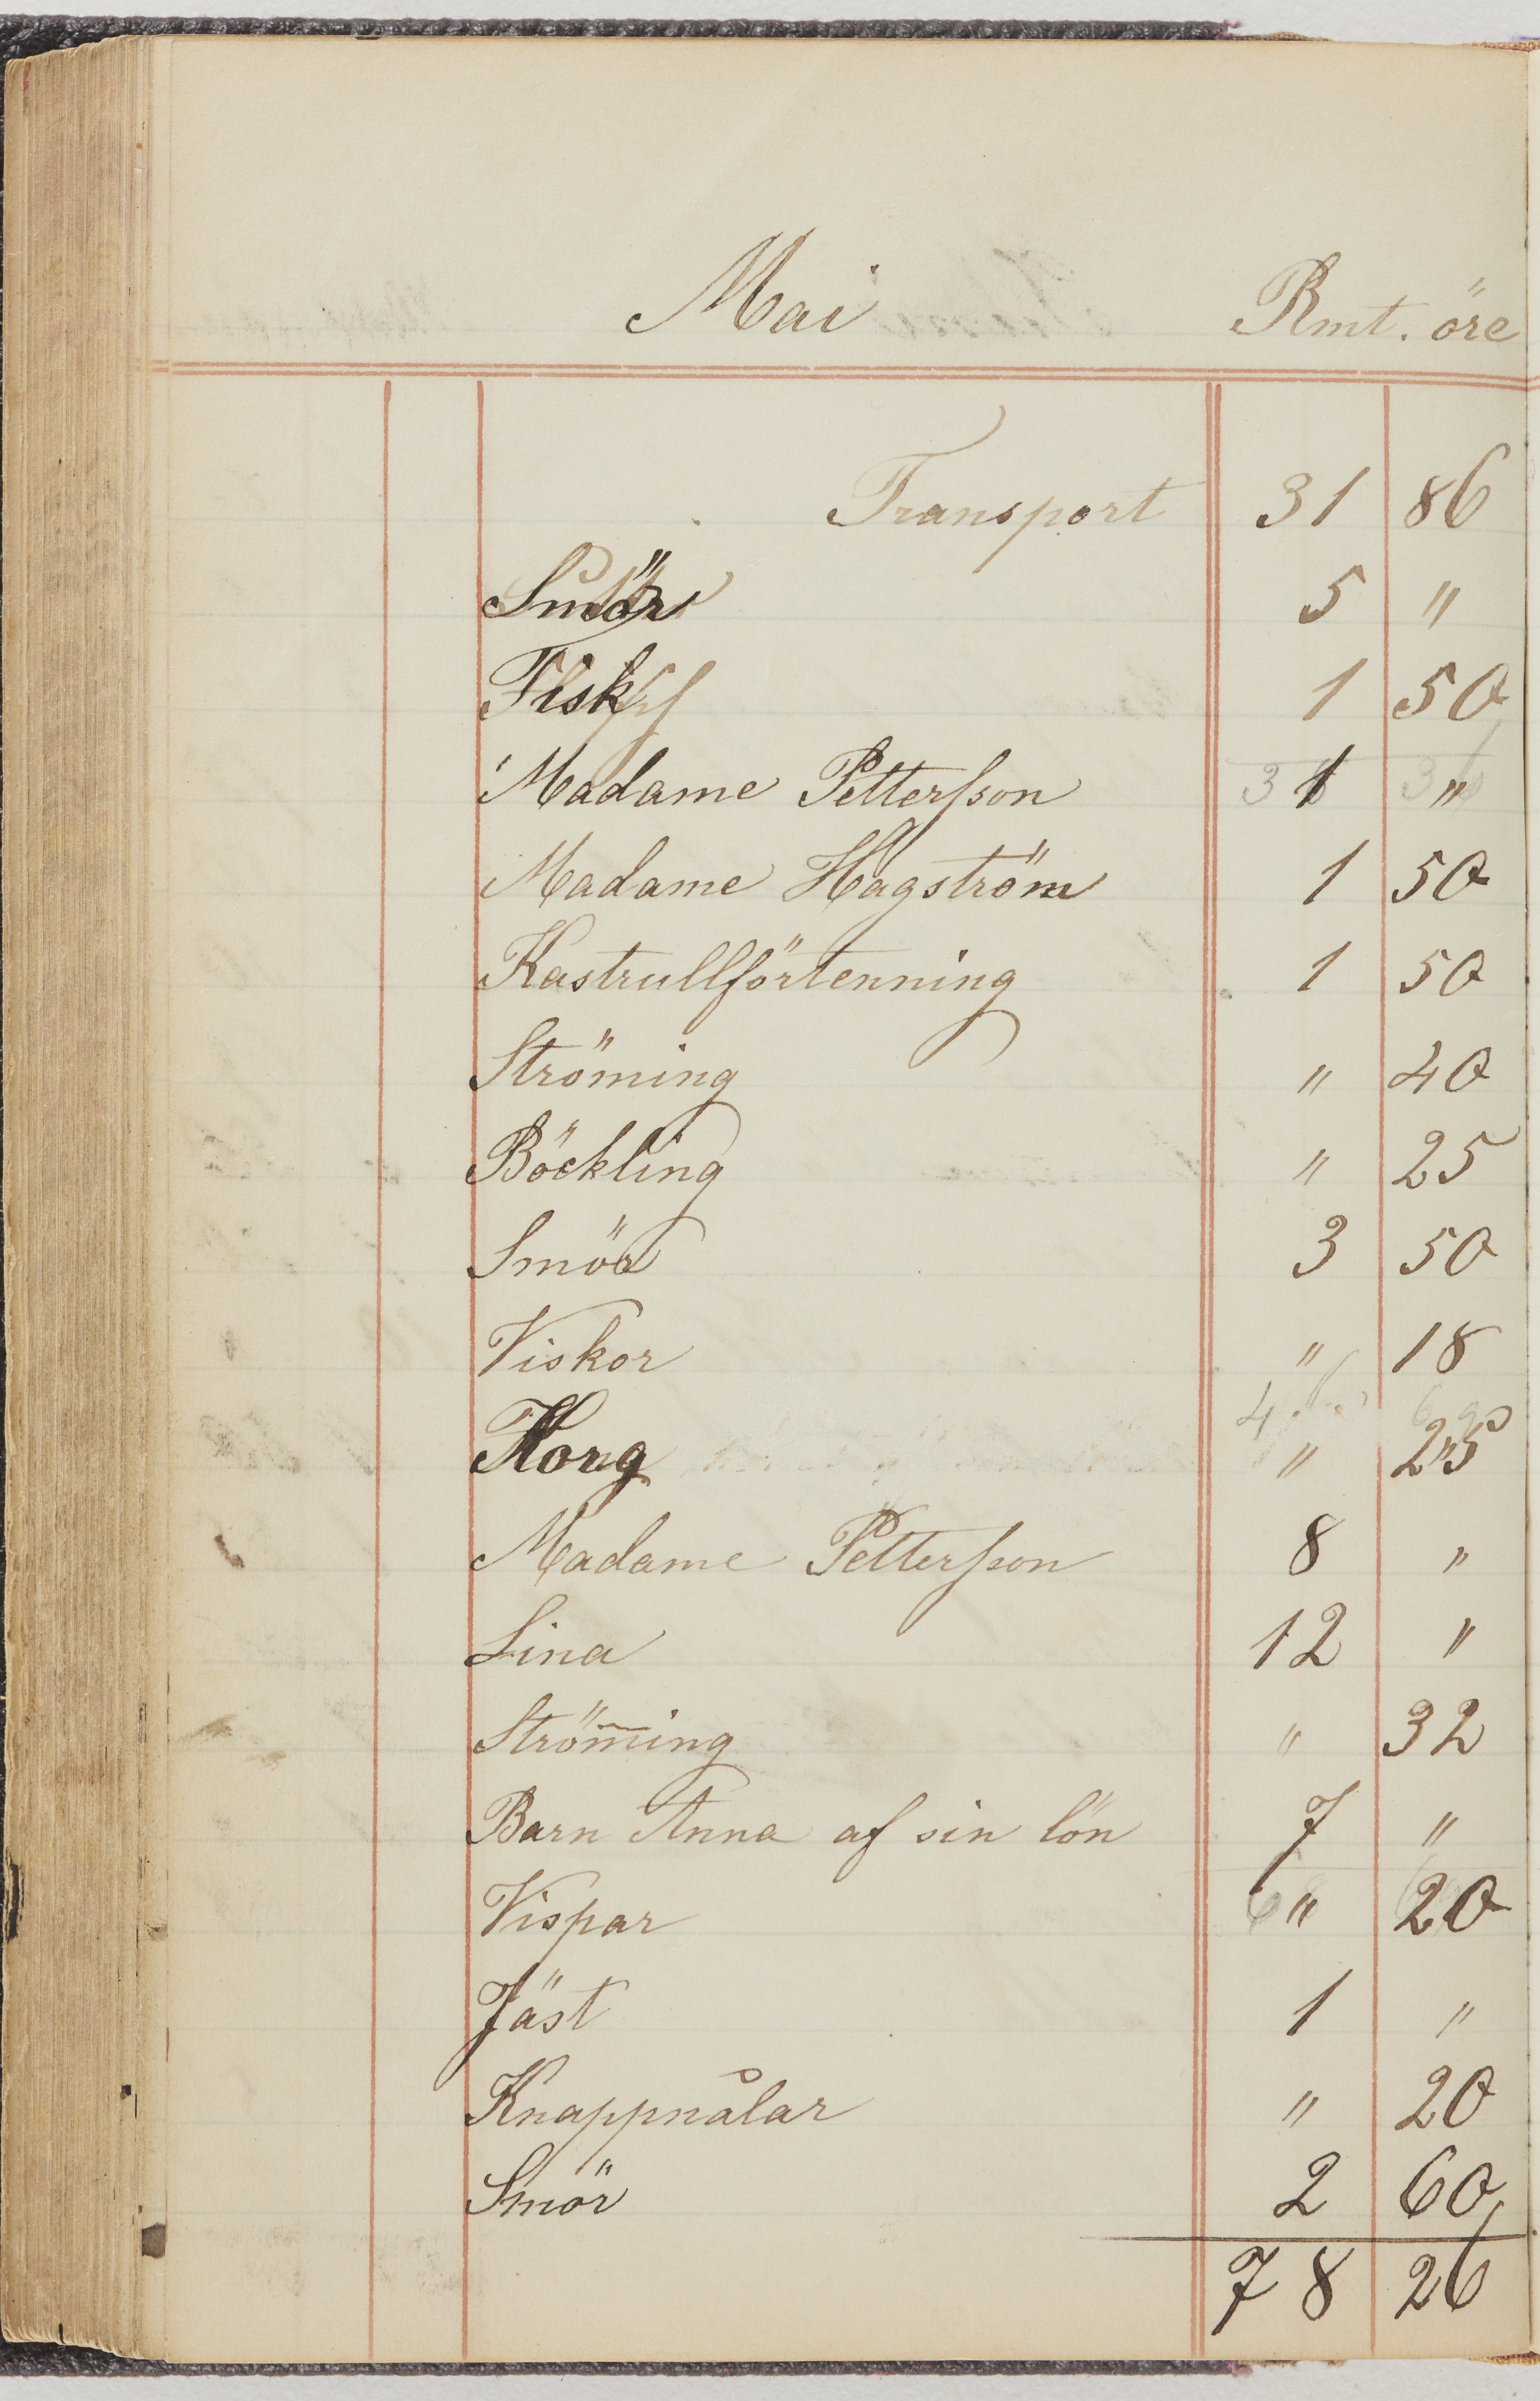 Mai Rmt. öre
Transport 31 86
Smör 5 "
Fisk 1 50
Madame Pettersson 1 "
Madame Hagström 1 50
Kastrullförtenning 1 50
Ströming " 40
Böckling " 25
Smör 3 50
Viskor " 18
Korg " 25
Madame Pettersson 8 "
Lina 12 "
Strömming " 32
Barn Anna af sin lön 7 "
Vispar " 20
Jäst 1 "
Knappnålar " 20
Smör 2 60
78 26